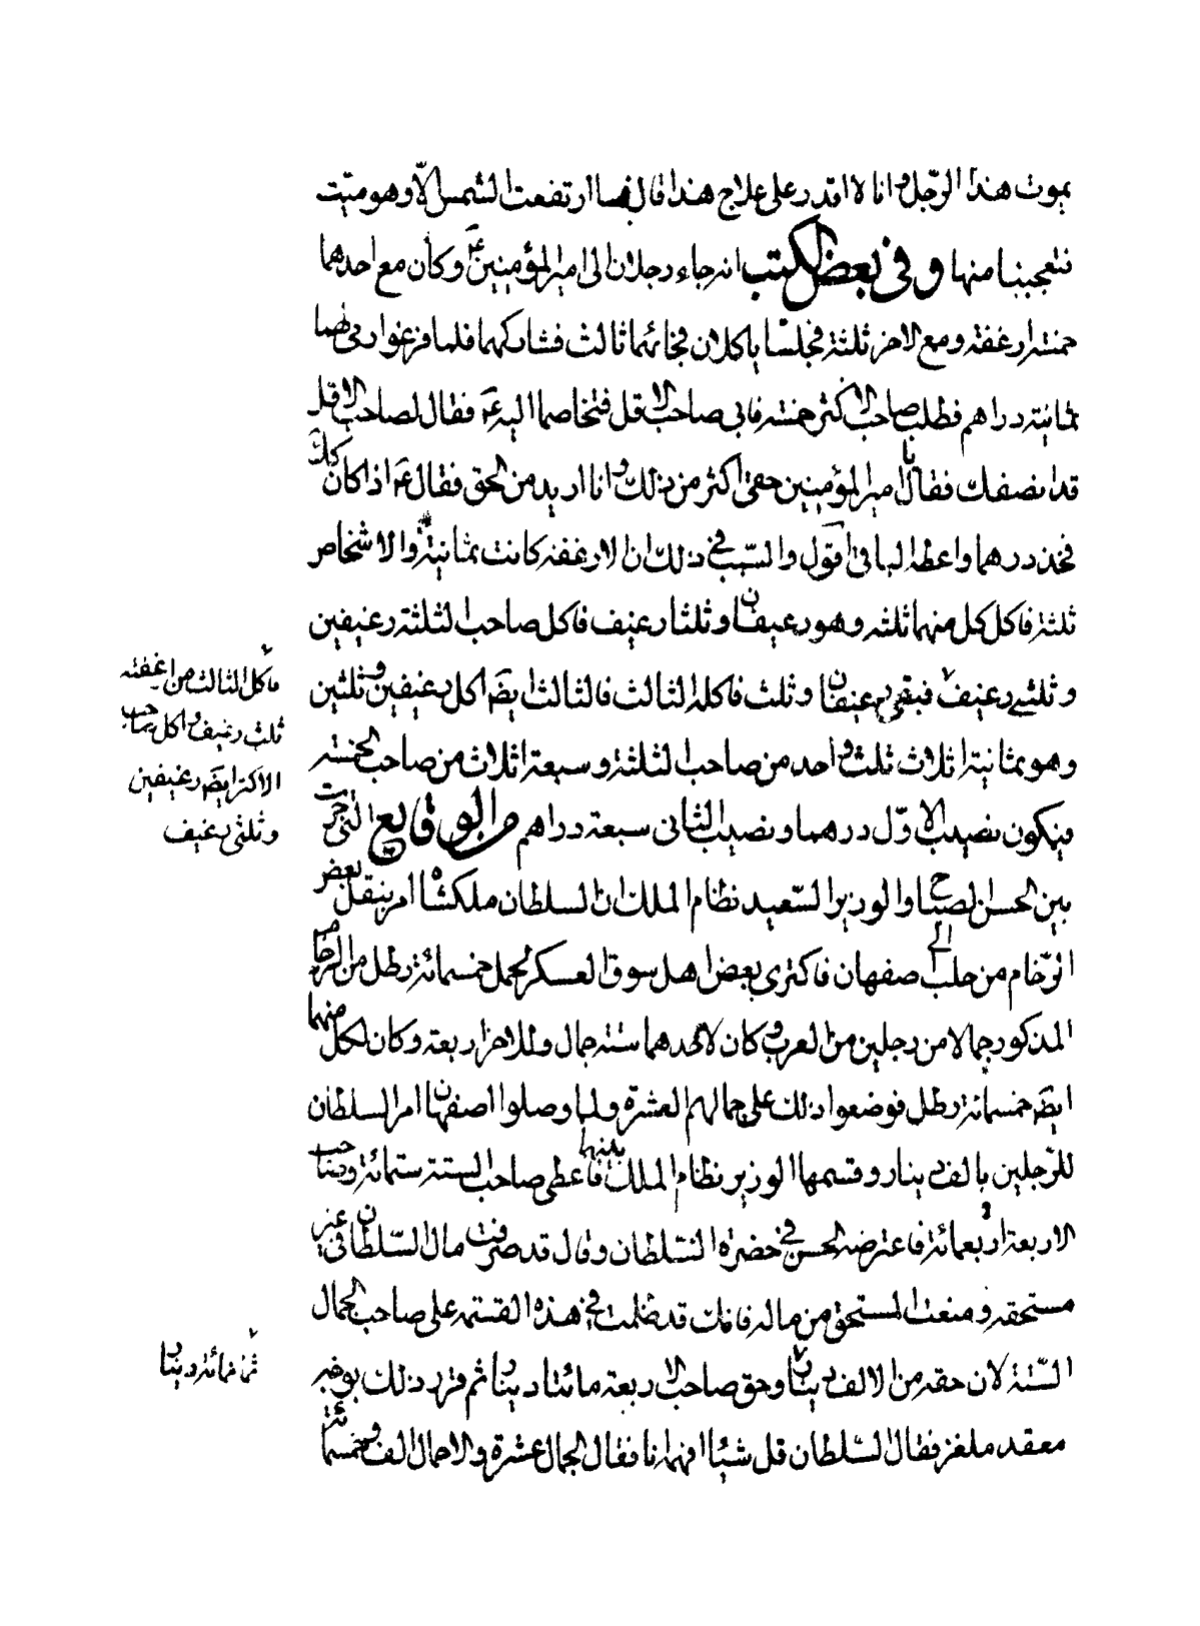 يموت هذا الرّجل وانا لا اقدر على علاج هذا قال فما ارتفعت الشمس الّا وهو ميّت
فتعجبنا منها وفي بعض الكتب انه جاء رجلان الى امير المؤمنين ع وكان مع احدهما
خمسة ارغفة ومع الاخر ثلثة فجلسا ياكلان فجائهما ثالث فشاركهما فلما فرغوا رمى لهما
ثمانية دراهم فطلب صاحب الاكثر خمسة فابى صاحب الاقل فتخاصما اليه ع فقال لصاحب الاقل
قد انصفك فقال يا امير المؤمنين حقى اكثر من ذلك وانا اريد من الحق فقال ع اذا كان كذلك
فخذ درهما واعطه الباقى اقول والسّبب في ذلك ان الارغفة كانت ثمانية والاشخاص
ثلثة فاكل كل منهما ثلثه وهو رغيفان وثلثا رغيف فاكل صاحب الثلثة رغيفين
وثلثى رغيف فبقى رغيفان وثلث فاكله الثالث فالثالث ايضَ اكل رغيفين وثلثين
وهو ثمانية اثلاث ثلث واحد من صاحب الثلثة وسبعة اثلاث من صاحب الخمسة
فيكون نصيب الاوّل درهما ونصيب الثانى سبعة دراهم من الوقايع التى جرت
بين الحسن الصباح والوزير السّعيد نظام الملك ان السلطان ملكشاه امر بنقل بعض
الرّخام من حلب الى صفهان فاكترى بعض اهل سوق العسكر لحمل خمسمائة رطل من الرخام
المذكور جمالا من رجلين من العرب وكان لاحدهما ستة جمال وللاخر اربعة وكان لكل منهما
ايضَ خمسمائة رطل فوضعوا ذلك على جمالهم العشرة ولما وصلوا اصفهان امر السلطان
للرّجلين بالف دينار وقسمها الوزير نظام الملك بينهما فاعطى صاحب الستة ستمائة وصاحب
الاربعة اربعمائة فاعترضه الحسن في حضرة السّلطان وقال قد صرفت مال السّلطان في غير
مستحقه ومنعت المستحق من ماله فانك قد ظلمت في هذه القسمة على صاحب الجمال
السّتة لان حقه من الالف دينار وحق صاحب الاربعة مائتا دينار ثم قرر ذلك بوجه
معقد ملغز فقال السّلطان قل شيئا افهمه انا فقال الجمال عشرة والاحمال الف وخمسمائة
فاكل الثالث من ارغفته
ثلث رغيف واكل صاحب
الاكثر ايضَ رغيفين
وثلثى رغيف
ثمانمائة دينار